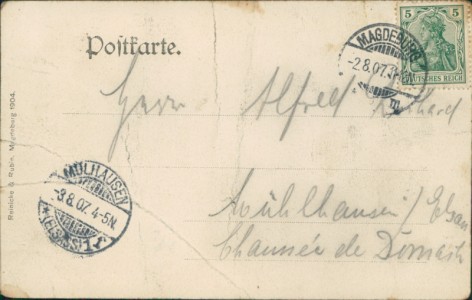 Postkarte.
MAGDEBURG
-2.8.07.
m
5 5
DEUTSCHES REICH
Herrn Alfred
MÜLHAUSEN
-3.8.07. 4-5N.
*(ELSASS)1
Mühlhausen / Elsass
Chaussée de Dornach
Reinicke & Rubin, Magdeburg 1904.